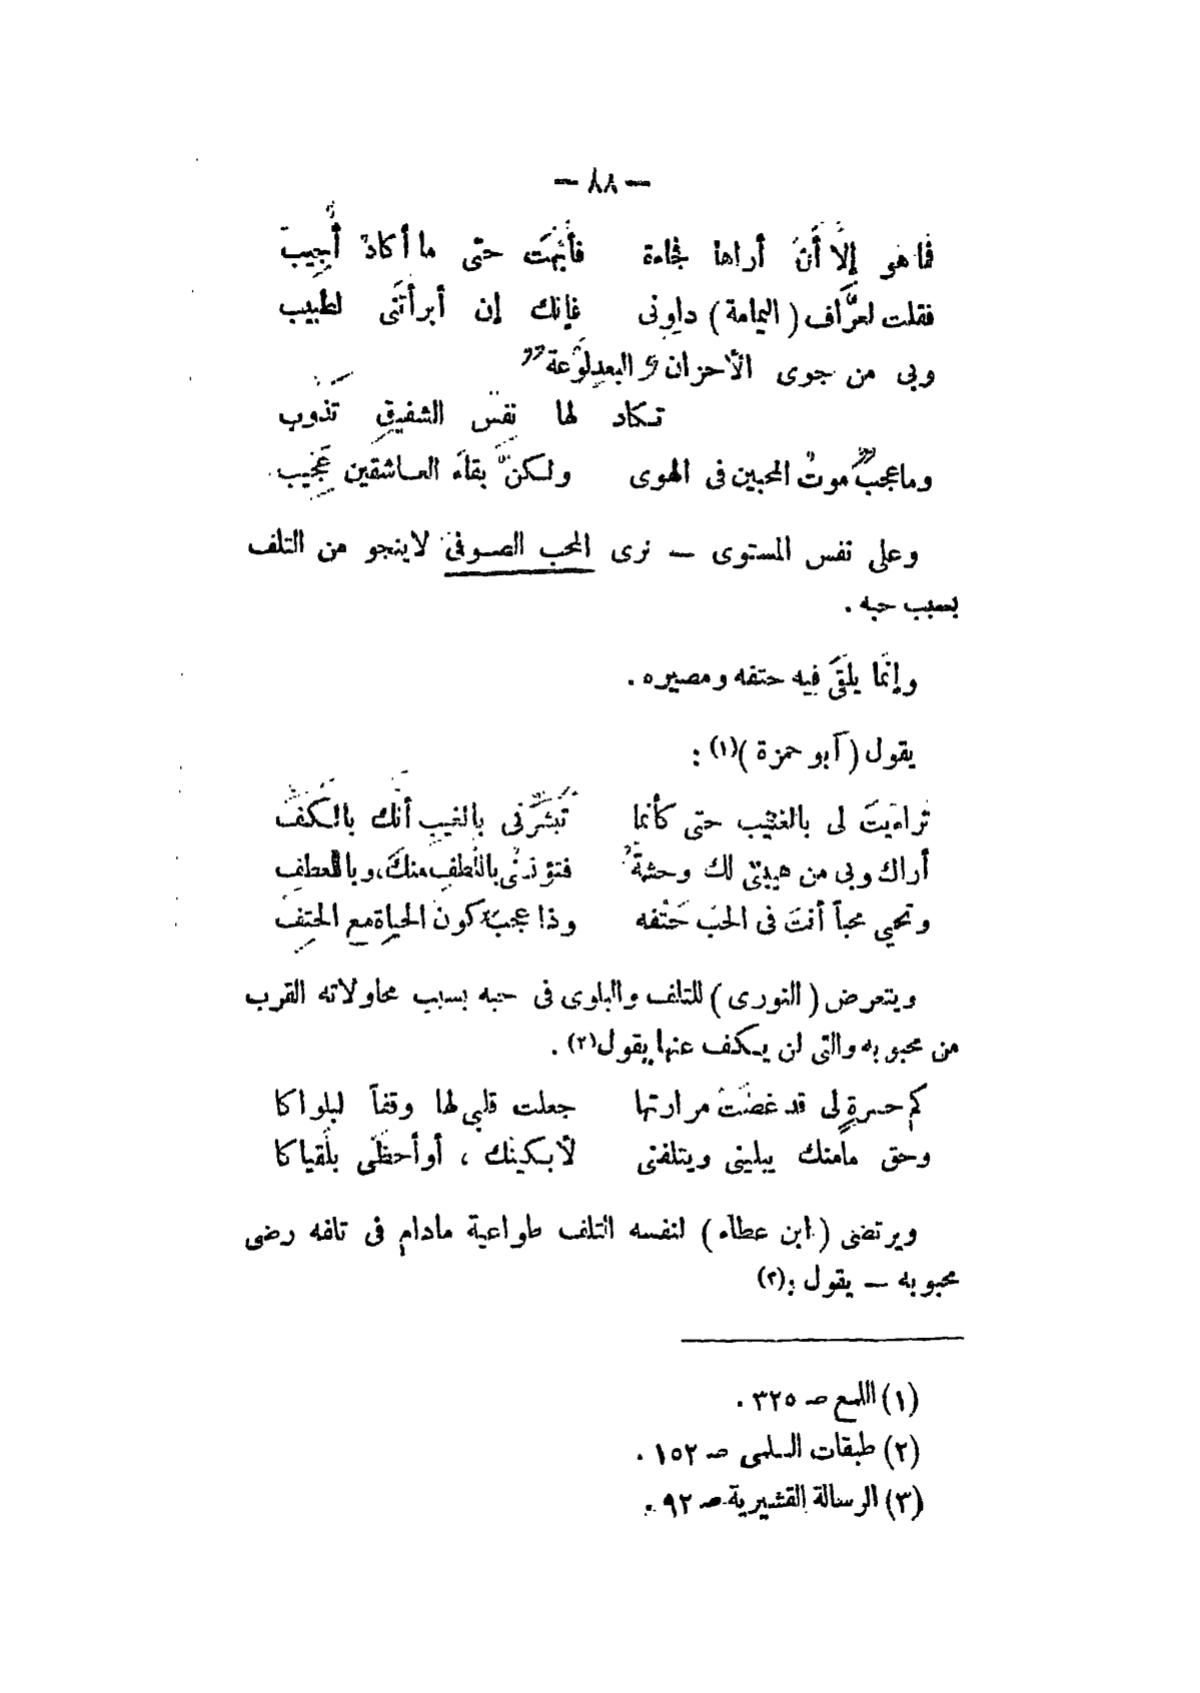 — ٨٨ —
فما هو إلَّا أَنْ أراها فجاءة فأبْهَت حتى ما أكادُ أُجِيبُ
فقلت لعرَّاف ( اليمامة ) داوِنى فإنك إن أبرأتَنى لطبيب
وبى من جوى الأحزان والبعدِ لَوْعةٌ
تكاد لها نفسُ الشفيقِ تَذوب
وما عجبٌ موتُ المحبين فى الهوى ولكنَّ بقاءَ العاشقين عَجِيب
وعلى نفس المستوى — نرى المحب الصوفى لاينجو من التلف
بسبب حبه .
وإنَّما يلقَى فيه حتفه ومصيره .
يقول ( أبو حمزة )(١) :
تراءيتَ لى بالغيب حتى كأنما تُبَشِّرُنى بالغيبِ أنَّك بالكَفِّ
أراك وبى من هيبتى لك وحشةٌ فتؤنسُنى باللُّطفِ منكَ، وبالعطفِ
وتحيى محباً أنتَ فى الحبِّ حَتْفه وذا عجبٌ كونُ الحياةِ مع الحتفِ
ويتعرض ( النورى ) للتلف والبلوى فى حبه بسبب محاولاته القرب
من محبوبه والتى لن يكف عنها يقول(٢) .
كم حسرةٍ لى قد غصَّتْ مرارتها جعلت قلبى لها وقفاً لبلواكا
وحق مامنك يبلينى ويتلفنى لأبكينك ، أو أحظَى بلُقياكا
ويرتضى ( ابن عطاء ) لنفسه التلف طواعية مادام فى تلفه رضى
محبوبه — يقول :(٣)
(١) اللمع صـ ٣٢٥ .
(٢) طبقات السلمى صـ ١٥٢ .
(٣) الرسالة القشيرية صـ ٩٢ .